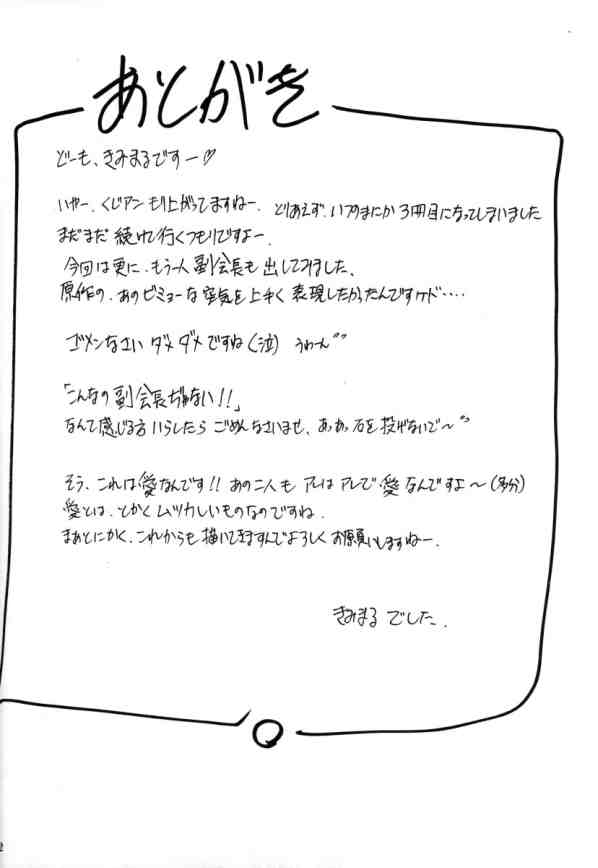 あとがき
どーも、きみまるですー♡
いやー、くじアンもり上がってますねー、とりあえず、いつのまにか3冊目になってしまいました
まだまだ続けて行くつもりですよー、
今回は更に、もう一人副会長も出してみました、
原作の、あのビミョーな空気を上手く表現したかったんですケド・・・・
ゴメンなさいダメダメですね(泣) うわーん
「こんなの副会長ぢゃない!!」
なんて感じる方いらしたらごめんなさいませ、あっあっ石を投げないで〜
そう、これは愛なんです!!あの二人もアレはアレで愛なんですよ〜(多分)
愛とは、とかくムツカしいものなのですね、
まあとにかく、これからも描いてきますんでよろしくお願いしますねー、
きみまるでした、
2